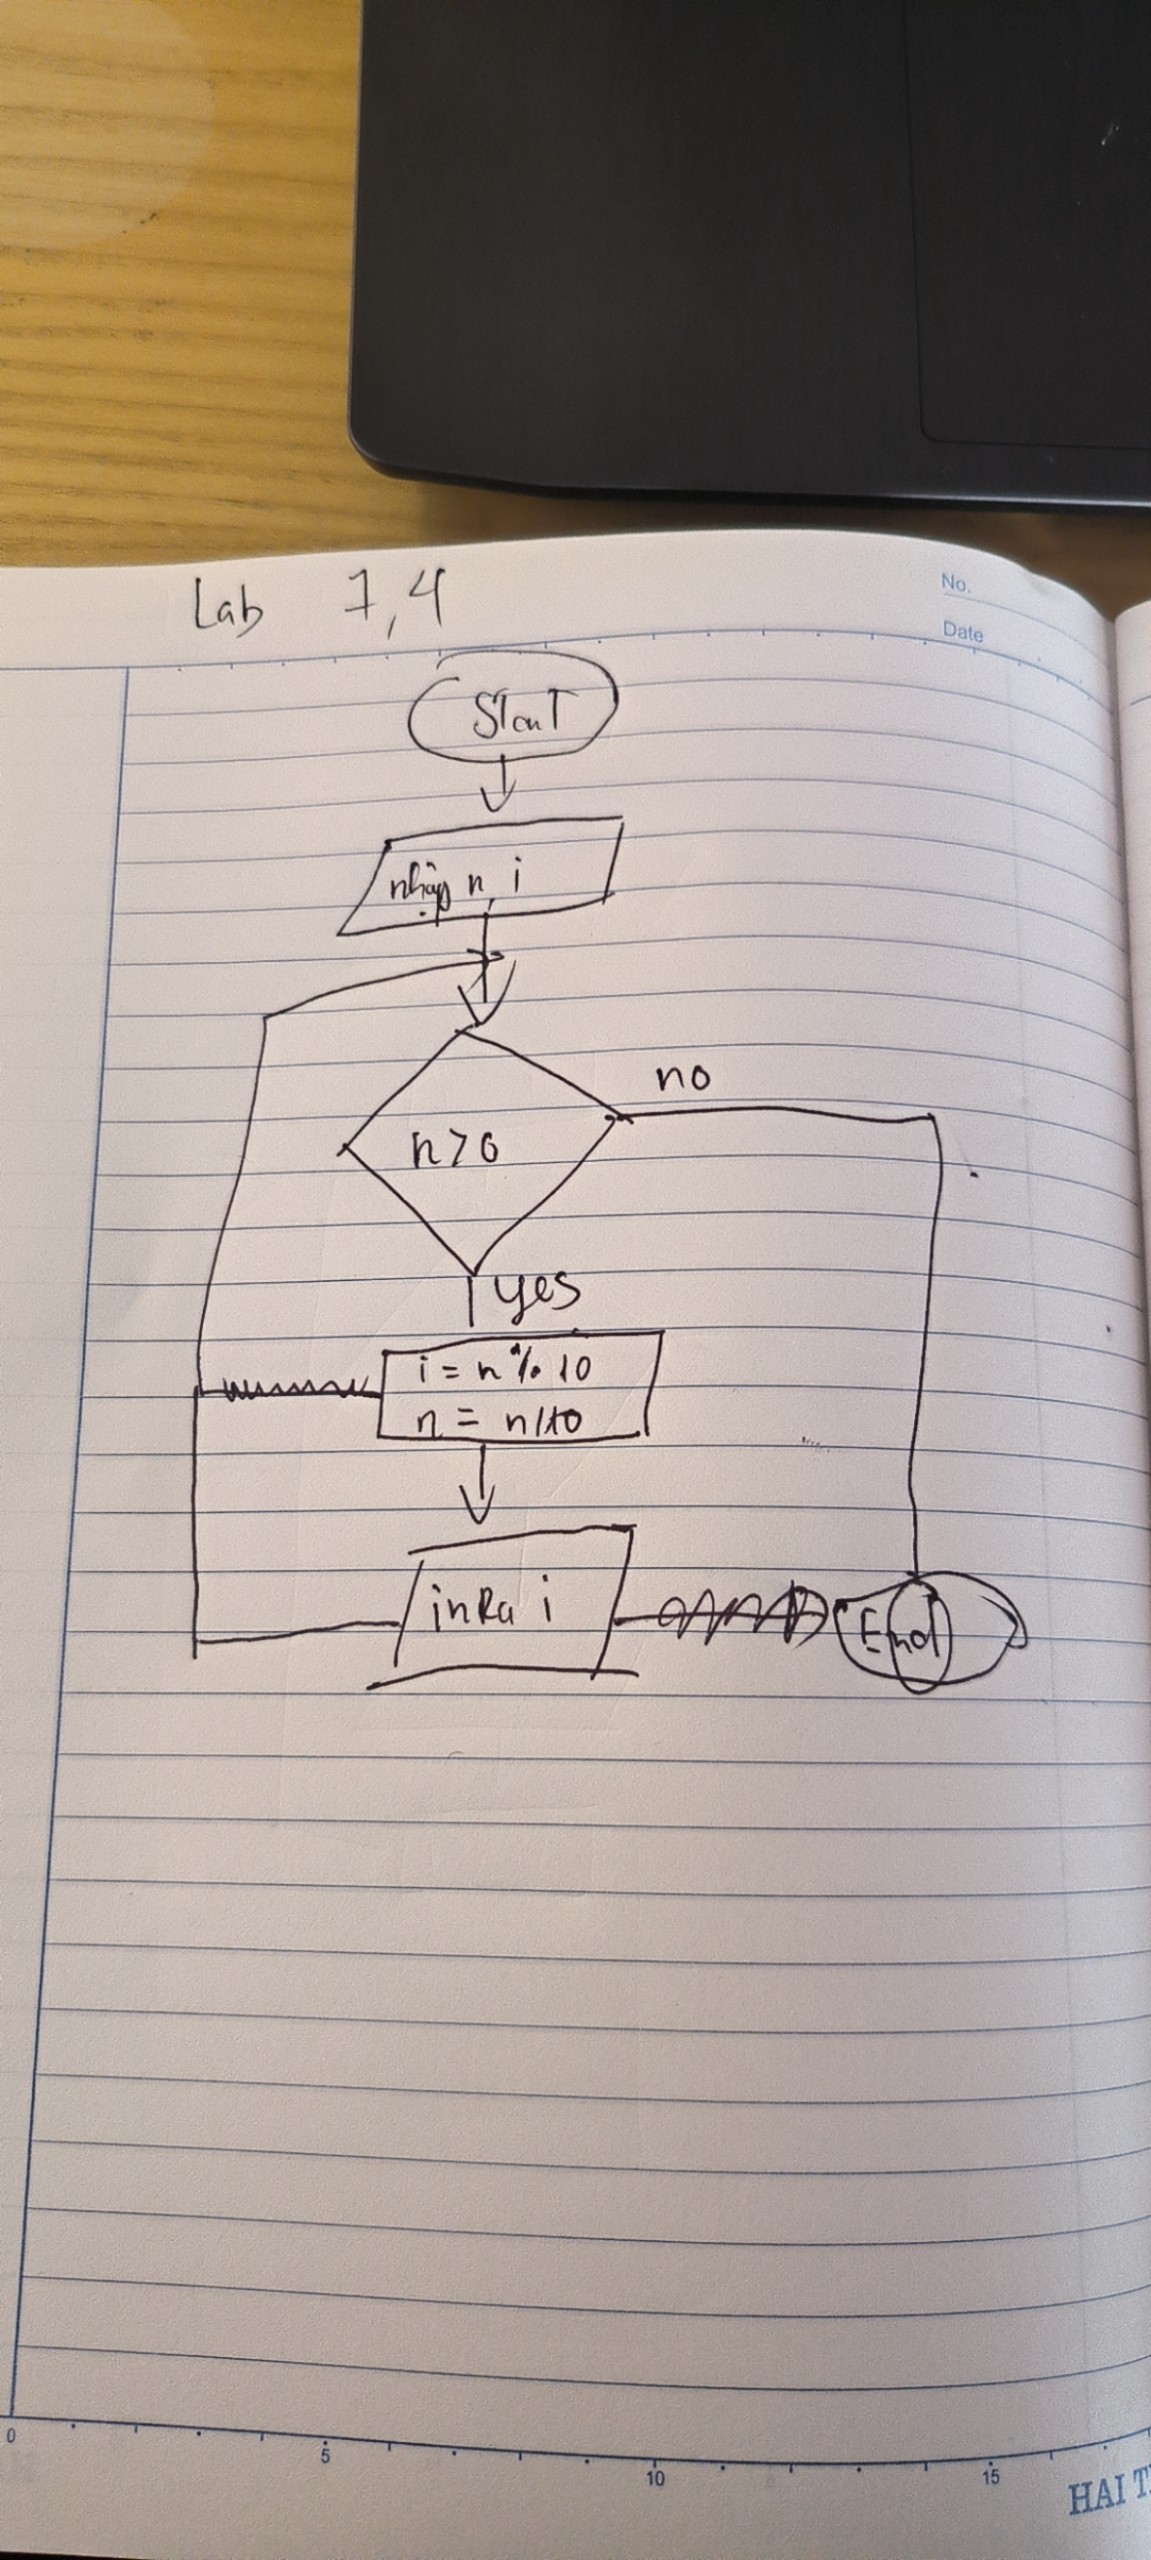 Lab 7,4
No.
Date
Start
nhập n, i
n>0
no
yes
i = n % 10
n = n/10
in Ra i
End
0 5 10 15
HAI T